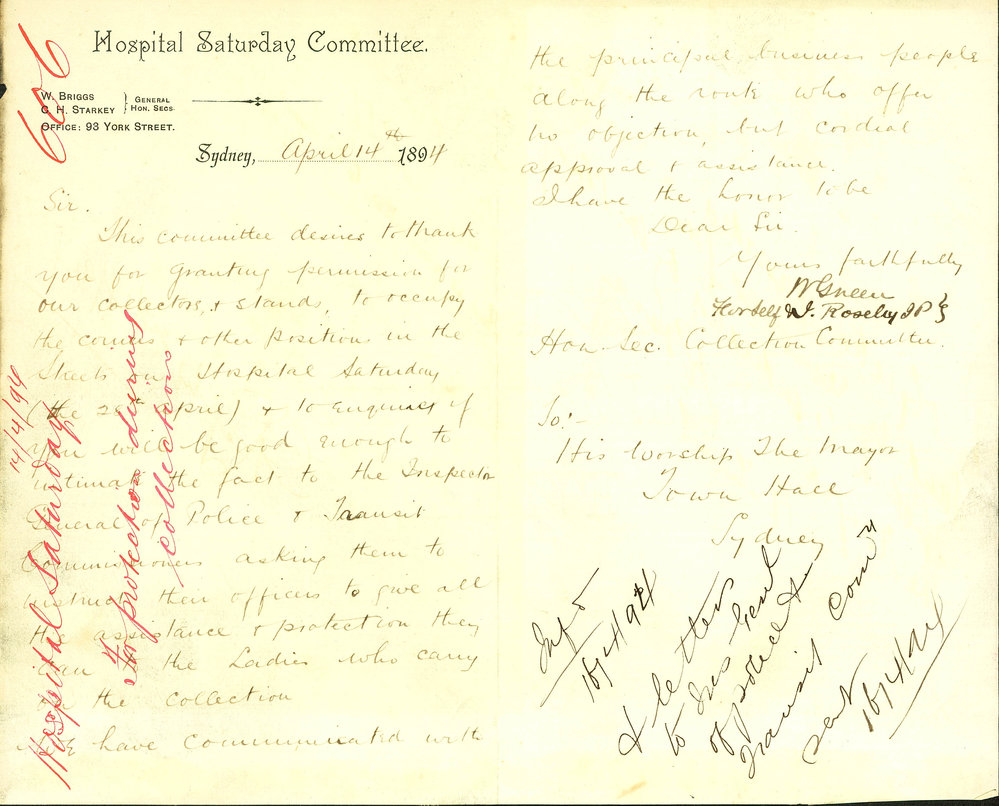 606
Hospital Saturday Committee.
W. BRIGGS
C. H. STARKEY
GENERAL
HON. SECS.
OFFICE: 93 YORK STREET.
Sydney, April 14th 1894
Sir.
This committee desires to thank
you for granting permission for
our collectors, & stands, to occupy
the corners & other positions in the
Streets on Hospital Saturday
(the 28th April) & to enquire if
you will be good enough to
intimate the fact to the Inspector
General of Police & Transit
Commissioners asking them to
instruct their officers to give all
the assistance & protection they
can to the Ladies who carry
on the collection
We have communicated with
14/4/94
Hospital Saturday
For protection during
collection
the principal business people
along the route who offer
no objection, but cordial
approval & assistance.
I have the honor to be
Dear Sir.
Yours faithfully
W Green
For self & J. Roseby JP }
Hon. Sec. Collection Committee.
To:-
His Worship The Mayor
Town Hall
Sydney
16/4/94
& letters
to Ins Genl
of police &
transit Comrs
sent
16/4/94